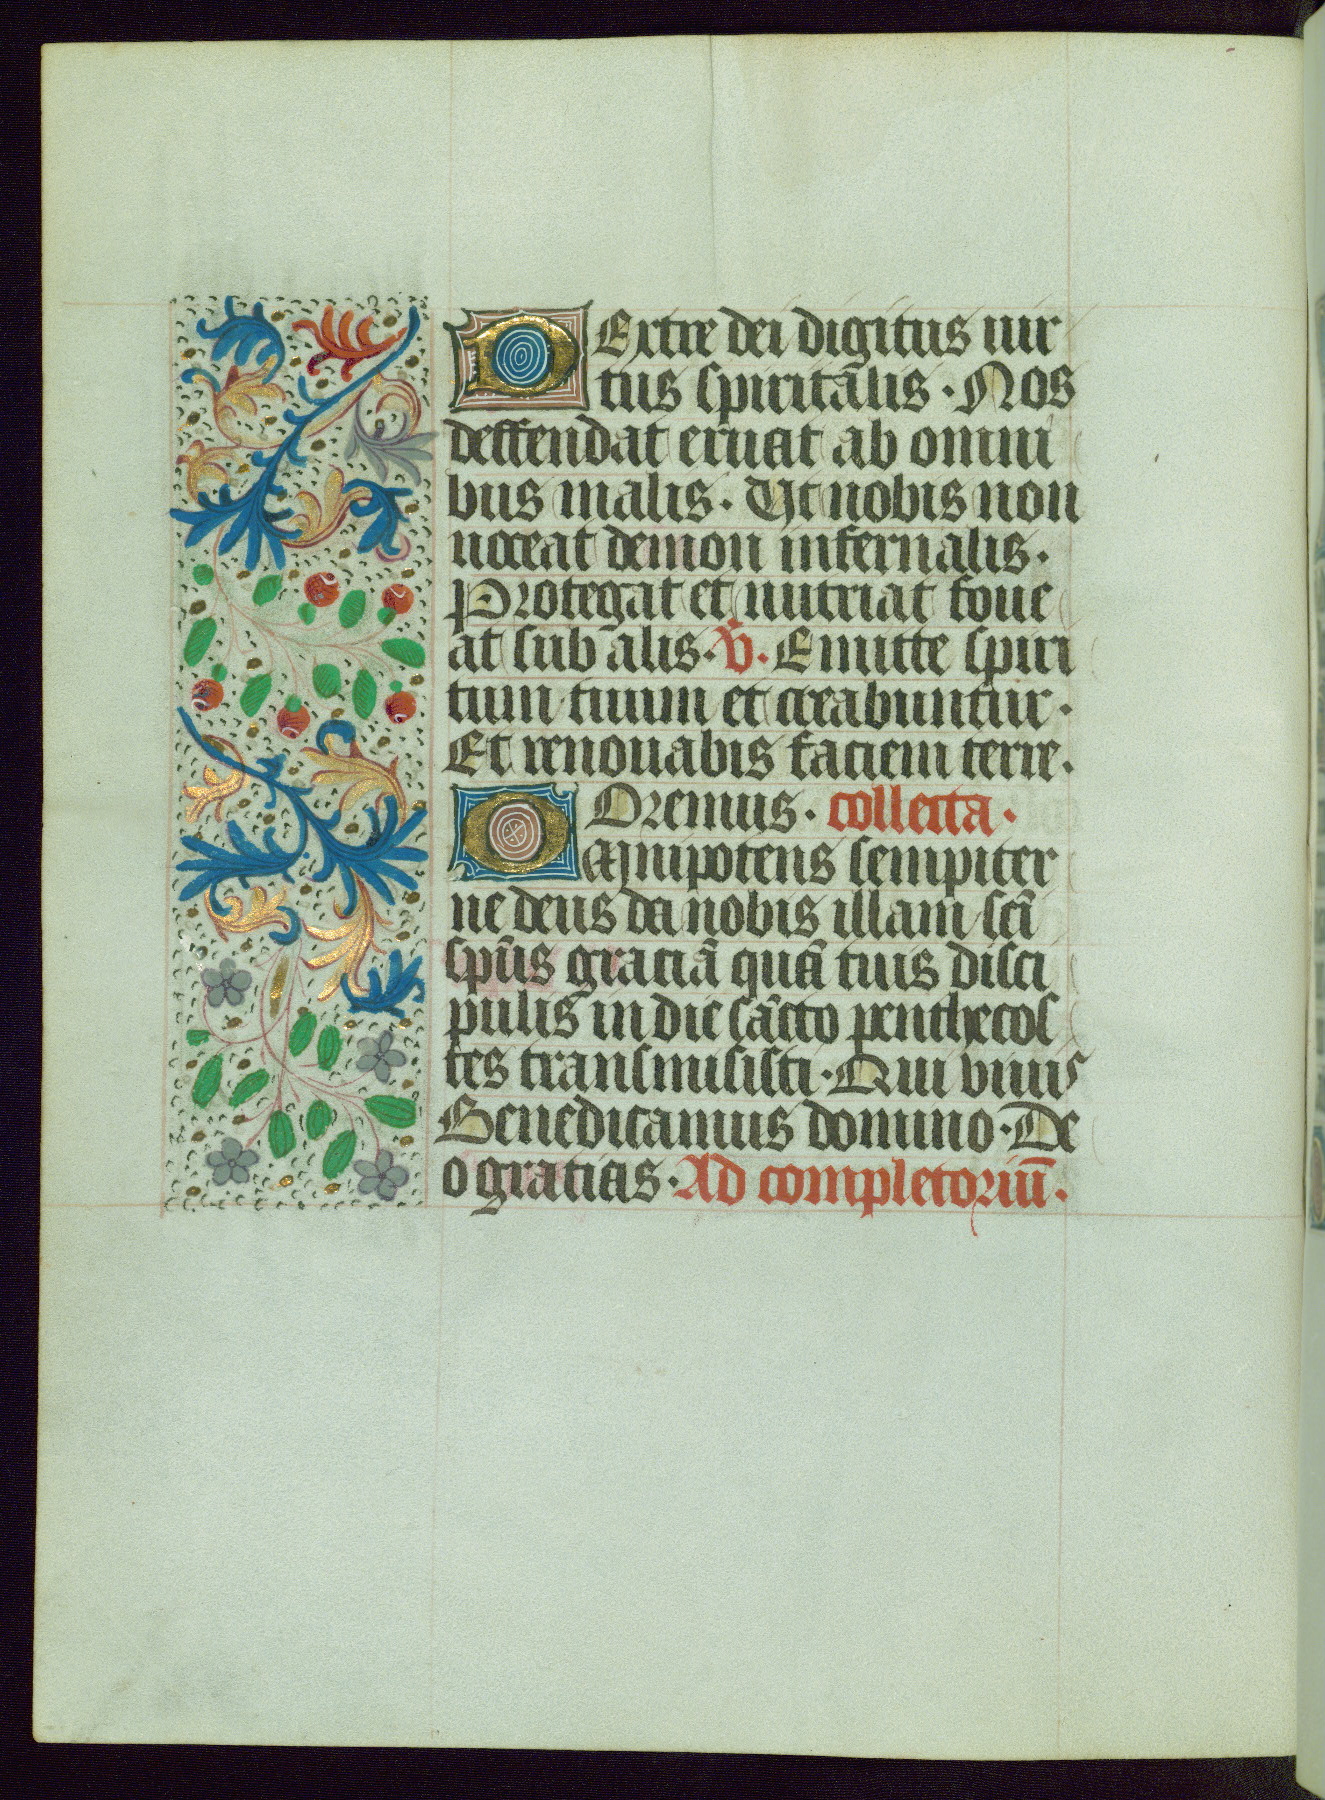 DExtre dei digitus uir
tus spiritālis · Nos
deffendat eruat ab omni
bus malis · Ut nobis non
noceat demon infernalis ·
Protegat et nutriat foue
at sub alis · V̄ · Emitte spiri
tum tuum et creabuntur ·
Et renouabis faciem terre ·
Oremus · collecta ·
OMnipotens sempiter
ne deus da nobis illam scī
spūs gratiā quā tuis disci
pulis in die sācto penthecos
tes transmisisti · Qui viuis
Benedicamus domino · De
o gratias · Ad completoriū ·